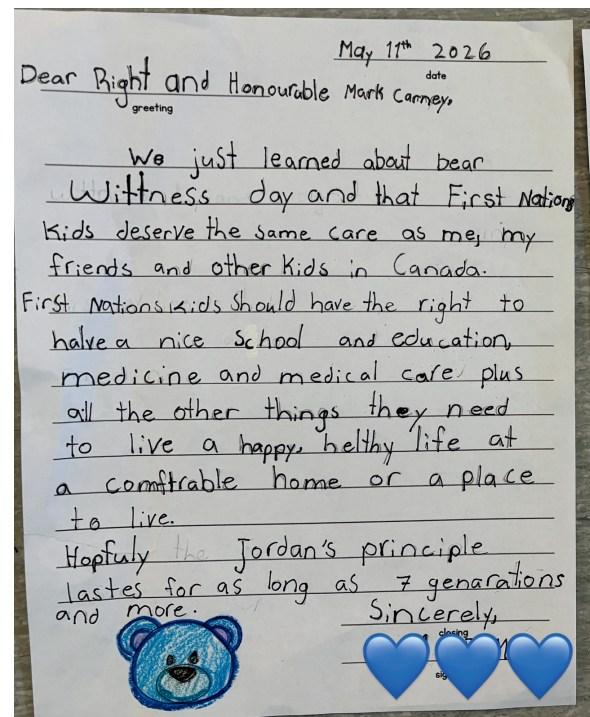 May 11th 2026
date
Dear Right and Honourable Mark Carney,
greeting
We just learned about bear
Wittness day and that First Nations
kids deserve the same care as me, my
friends and other kids in Canada.
First Nations kids should have the right to
halve a nice school and education,
medicine and medical care plus
all the other things they need
to live a happy, helthy life at
a comftrable home or a place
to live.
Hopfuly the Jordan's principle
lastes for as long as 7 genarations
and more.
Sincerely,
closing